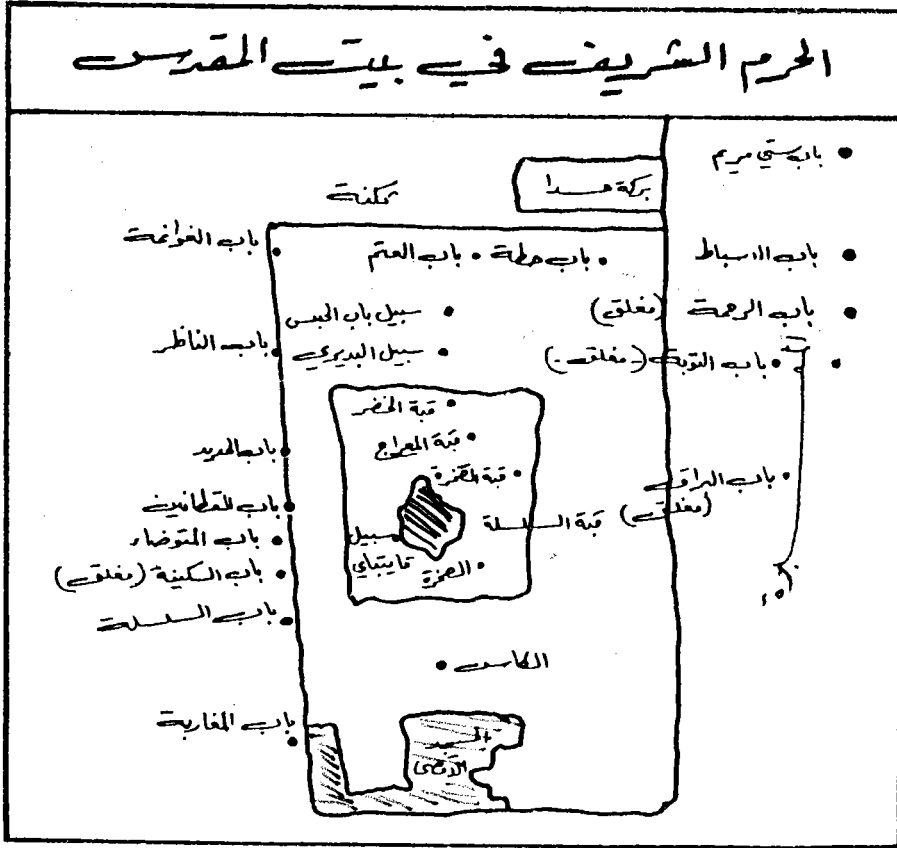 الحرم الشريف في بيت المقدس
باب ستي مريم
بركة
ثكنة
باب الغوانمة
باب العتم
باب حطة
باب الاسباط
سبيل باب الحبس
باب الرحمة (مغلق)
باب الناظر
سبيل البديري
باب التوبة (- مغلق -)
قبة الخضر
قبة المعراج
باب الحديد
قبة الصخرة
باب البراق
(مغلق)
باب القطانين
قبة السلسلة
باب المتوضاء
سبيل
قايتباي
الصخرة
باب السكينة (مغلق)
باب السلسلة
الكاس
باب المغاربة
المسجد
الأقصى